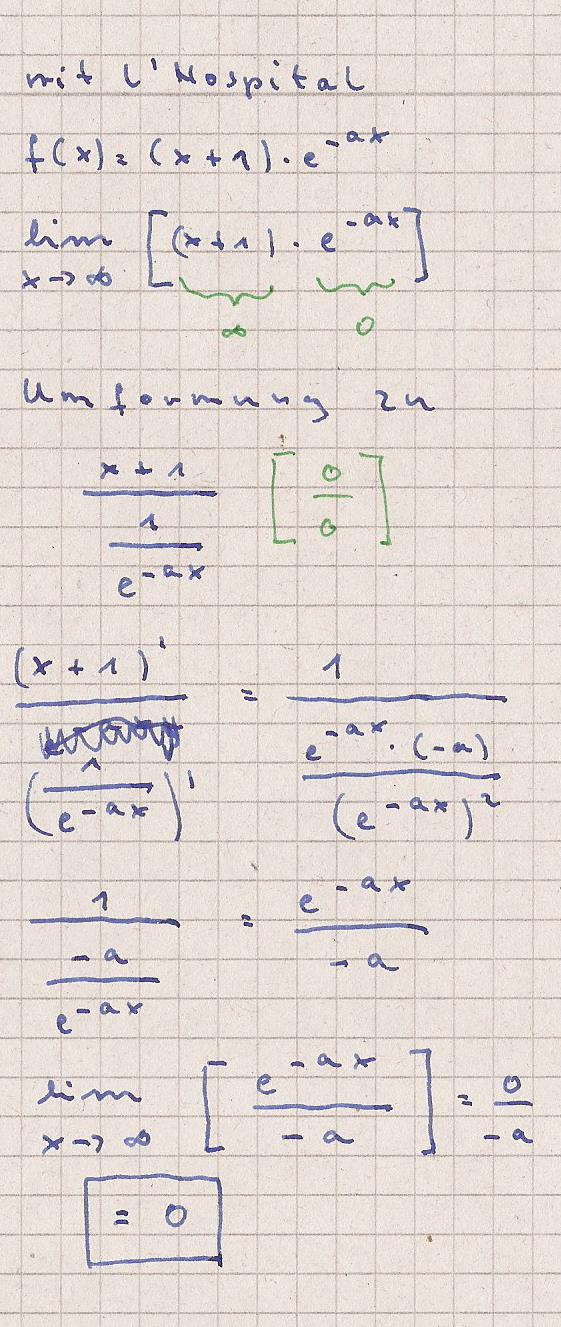 mit L'Hospital
f(x) = (x+1) · e^{-ax}
lim x→∞ [(x+1) · e^{-ax}]
∞ 0
Umformung zu
(x+1) / (1 / e^{-ax}) [0/0]
(x+1)' / (1 / e^{-ax})' = 1 / ((e^{-ax} · (-a)) / (e^{-ax})^2)
1 / (-a / e^{-ax}) = e^{-ax} / -a
lim x→∞ [e^{-ax} / -a] = 0 / -a
= 0